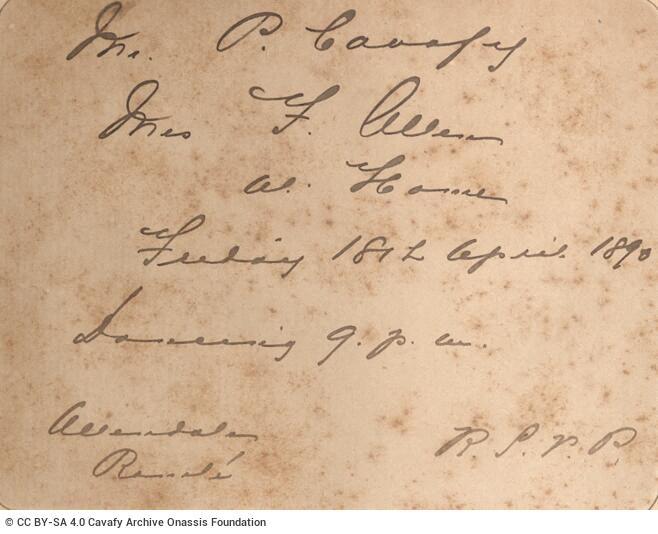 Mr. P. Cavafy
Mrs F. Allen
at Home
Friday 18th April 1890
Dancing 9. p. m.
Allendale
Ramlé
R. S. V. P.
© CC BY-SA 4.0 Cavafy Archive Onassis Foundation